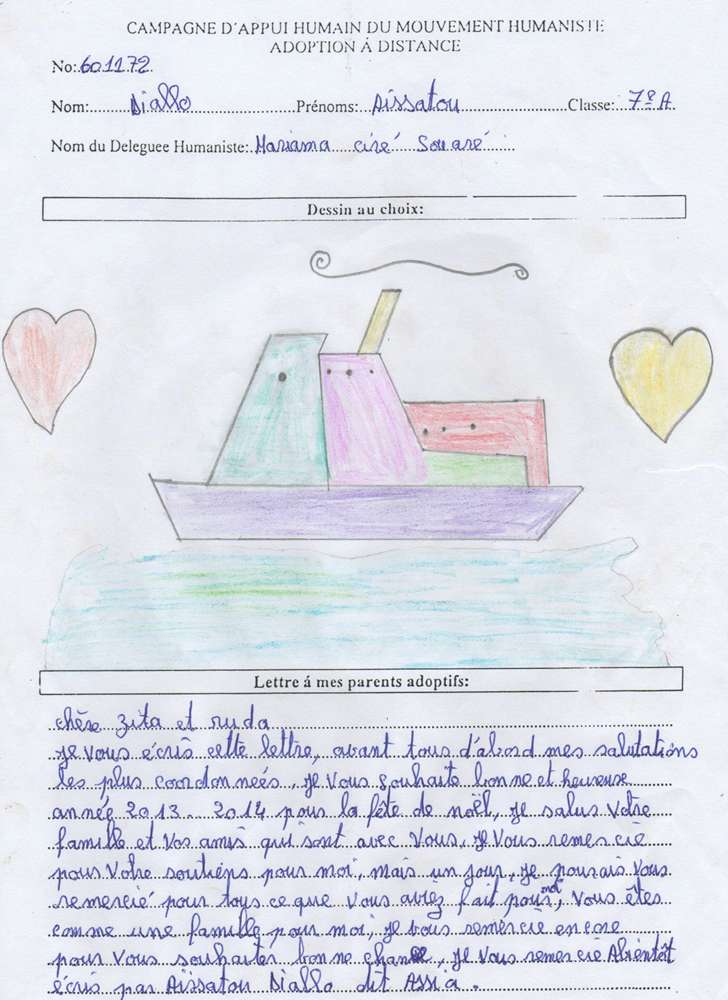 CAMPAGNE D'APPUI HUMAIN DU MOUVEMENT HUMANISTE
ADOPTION Á DISTANCE
No: 601172
Nom: Diallo Prénoms: Aissatou Classe: 7º A
Nom du Deleguee Humaniste: Mariama ciré Souaré
Dessin au choix:
Lettre á mes parents adoptifs:
chère Zita et ruda
je vous écris cette lettre, avant tous d'abord mes salutations
les plus coordonneés, je vous souhaite bonne et heureuse
année 2013. 2014 pour la fête de noël, je salus votre
famille et vos amis qui sont avec vous, je vous remercie
pour votre soutiens pour moi, mais un jour, je pourais vous
remercié pour tous ce que vous aviez fait pour moi, vous êtes
comme une famille pour moi, je vous remercie encore
pour vous souhaiter bonne chance, je vous remercie Abientôt
écris par Aissatou Diallo dit Assia.